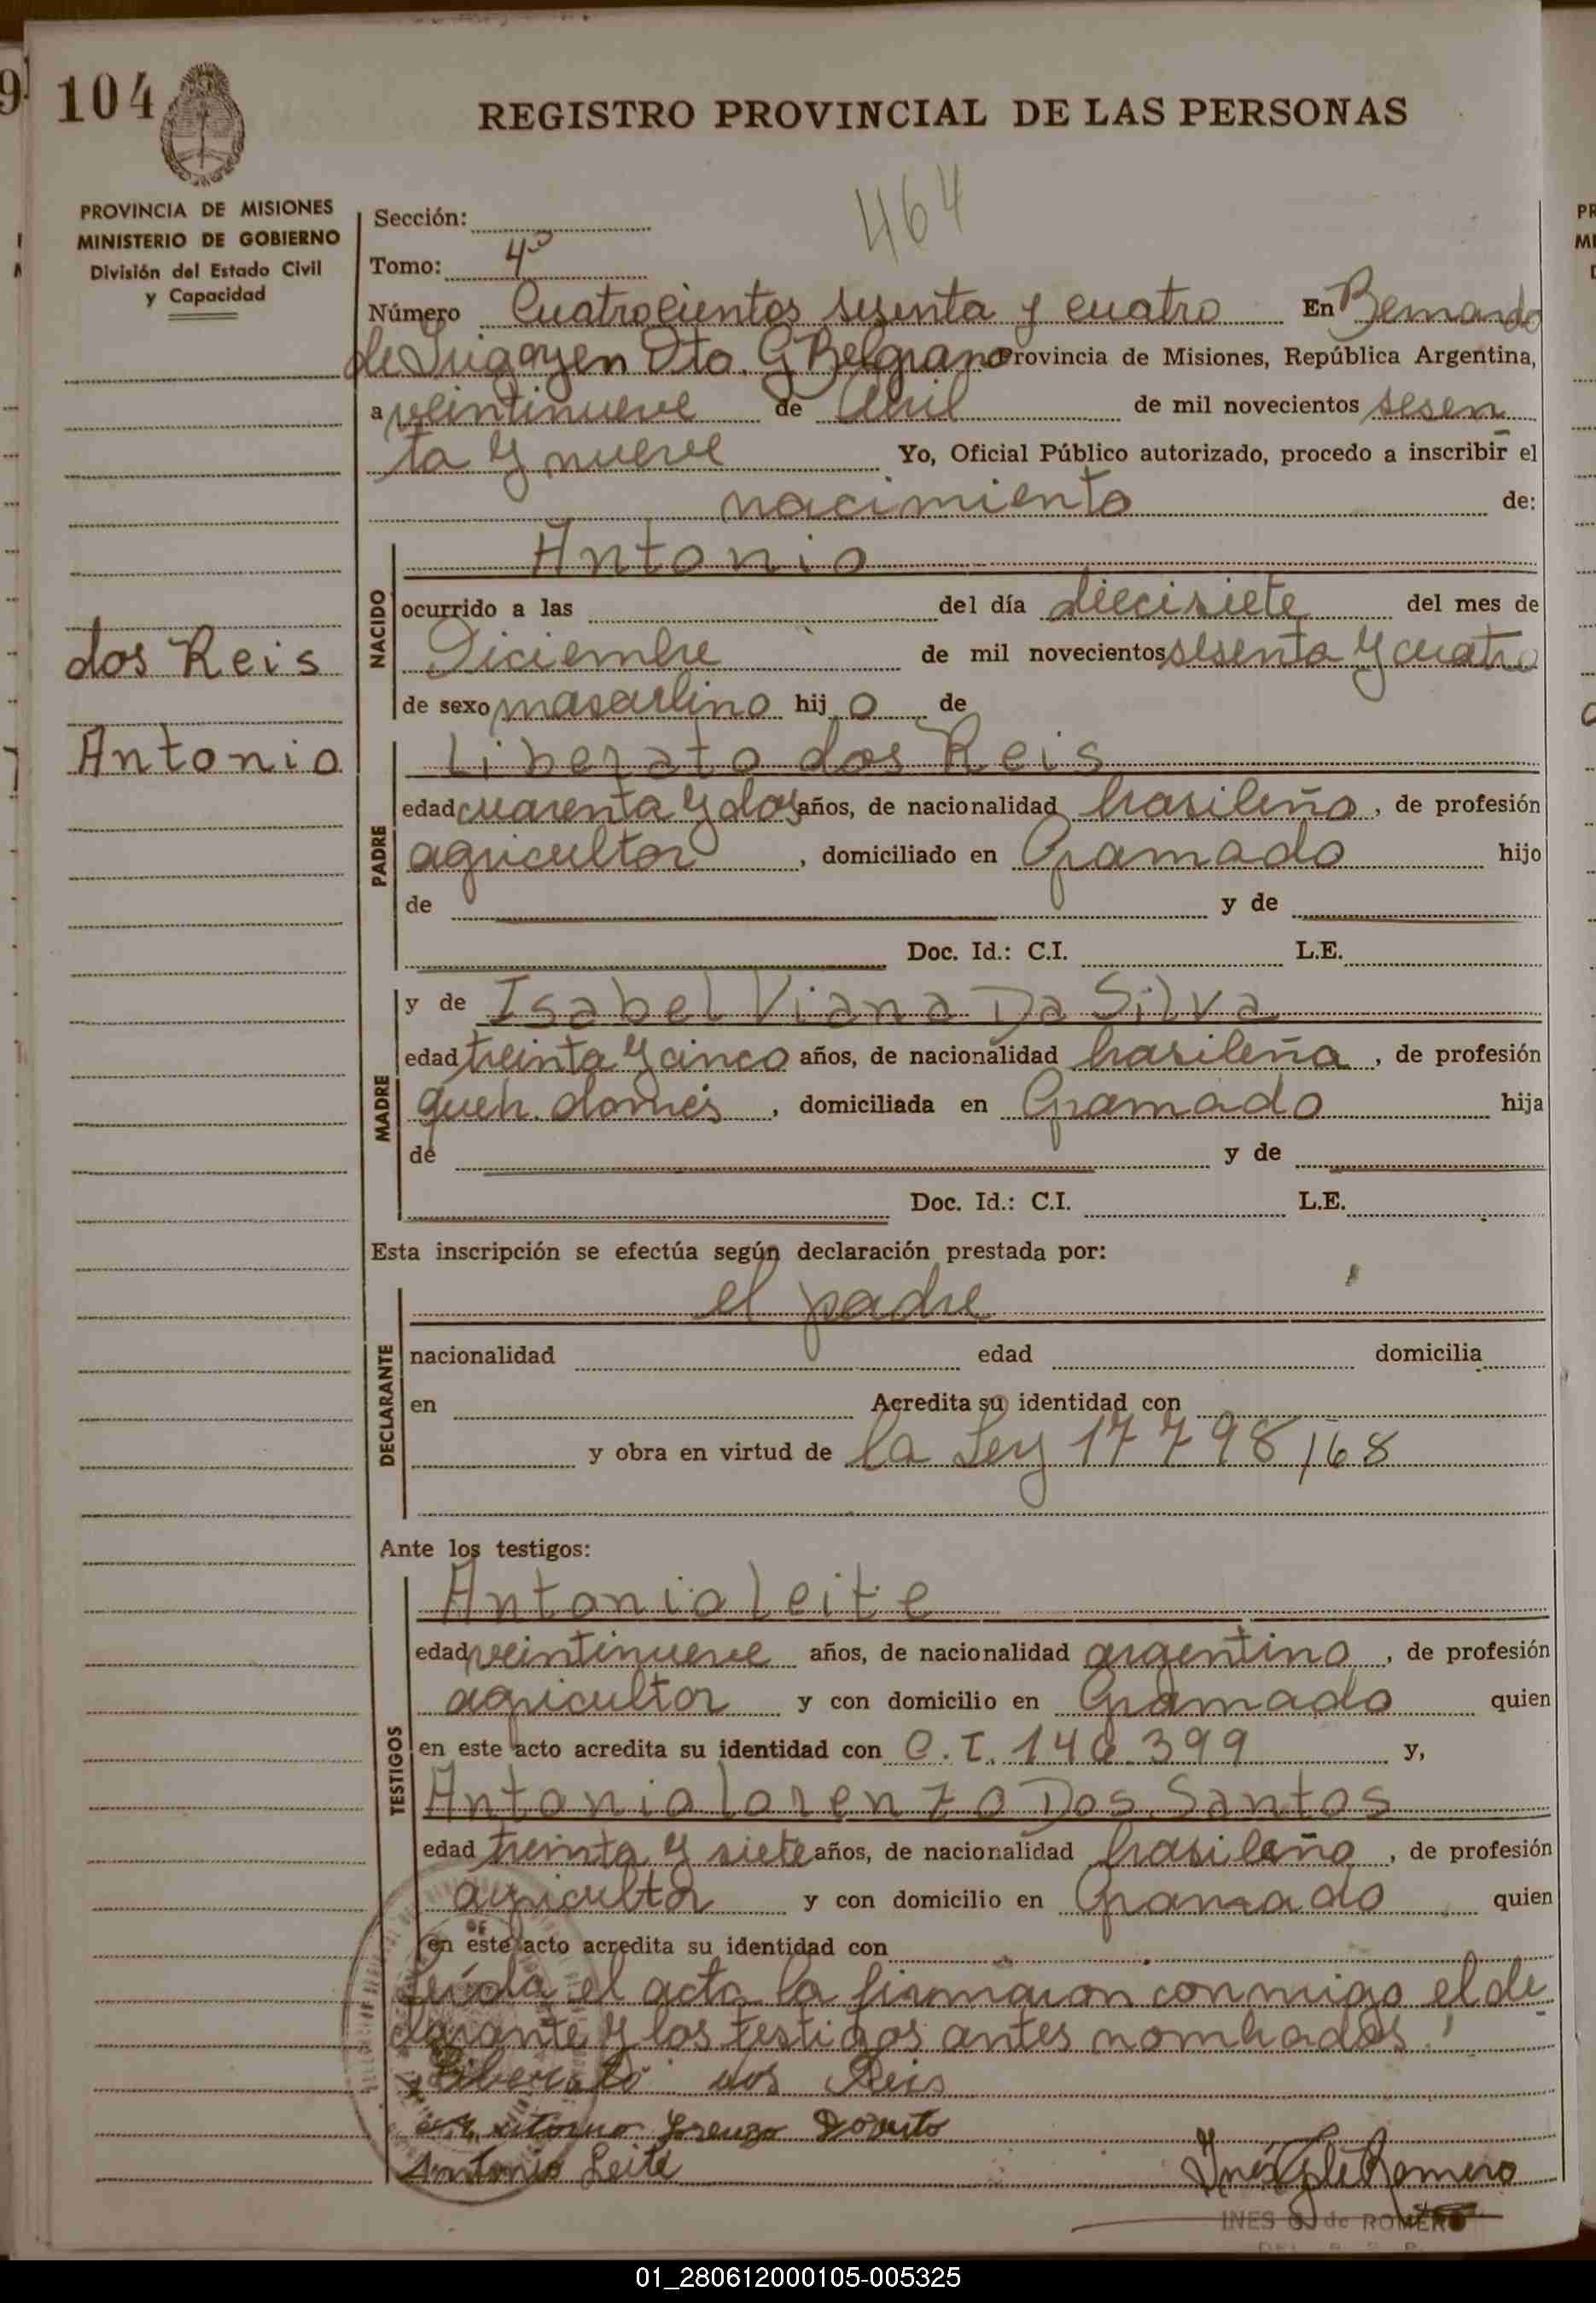 104
REGISTRO PROVINCIAL DE LAS PERSONAS
PROVINCIA DE MISIONES
MINISTERIO DE GOBIERNO
División del Estado Civil
y Capacidad
464
Sección:
Tomo: 4º
Número Cuatrocientos sesenta y cuatro En Bernardo
de Irigoyen Dto. G Belgrano Provincia de Misiones, República Argentina,
a veintinueve de Abril de mil novecientos sesen
ta y nueve Yo, Oficial Público autorizado, procedo a inscribir el
nacimiento de:
NACIDO
Antonio
ocurrido a las del día diecisiete del mes de
Diciembre de mil novecientos sesenta y cuatro
de sexo masculino hij o de
dos Reis
Antonio
PADRE
Liberato dos Reis
edad cuarenta y dos años, de nacionalidad brasileño, de profesión
agricultor, domiciliado en Gramado hijo
de y de
Doc. Id.: C.I. L.E.
MADRE
y de Isabel Viana Da Silva
edad treinta y cinco años, de nacionalidad brasileña, de profesión
queh. domés, domiciliada en Gramado hija
de y de
Doc. Id.: C.I. L.E.
Esta inscripción se efectúa según declaración prestada por:
DECLARANTE
el padre
nacionalidad edad domicilia
en Acredita su identidad con
y obra en virtud de la Ley 17798/68
Ante los testigos:
TESTIGOS
Antonio Leite
edad veintinueve años, de nacionalidad argentino, de profesión
agricultor y con domicilio en Gramado quien
en este acto acredita su identidad con C.I. 140.399 y,
Antonio Lorenzo Dos Santos
edad treinta y siete años, de nacionalidad brasileño, de profesión
agricultor y con domicilio en Gramado quien
en este acto acredita su identidad con
Leída el acta la firmaron conmigo el de
clarante y los testigos antes nombrados.
Liberato dos Reis
Lorenzo
Antonio Leite
Inés G de Romero
INES G. de ROMERO
01_280612000105-005325